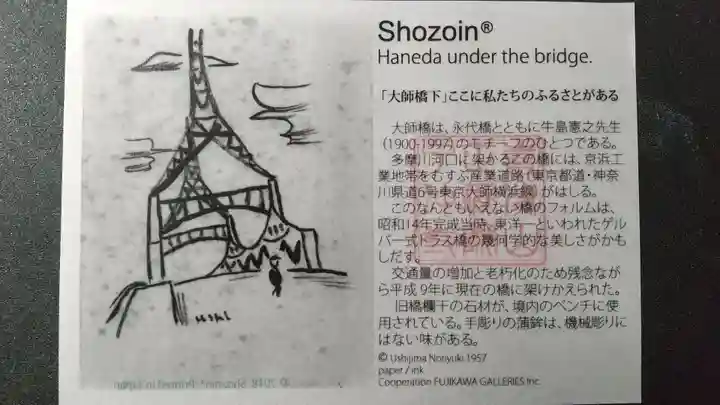 Shozoin®
Haneda under the bridge.
「大師橋下」ここに私たちのふるさとがある
大師橋は、永代橋とともに牛島憲之先生
(1900-1997)のモチーフのひとつである。
多摩川河口に架かるこの橋には、京浜工
業地帯をむすぶ産業道路(東京都道・神奈
川県道6号東京大師横浜線)がはしる。
このなんともいえない橋のフォルムは、
昭和14年完成当時、東洋一といわれたゲル
バー式トラス橋の幾何学的な美しさがかも
しだす。
交通量の増加と老朽化のため残念なが
ら平成9年に現在の橋に架けかえられた。
旧橋欄干の石材が、境内のベンチに使
用されている。手彫りの蒲鉾は、機械彫りに
はない味がある。
© Ushijima Noriyuki 1957
paper / ink
Cooperation FUJIKAWA GALLERIES Inc.